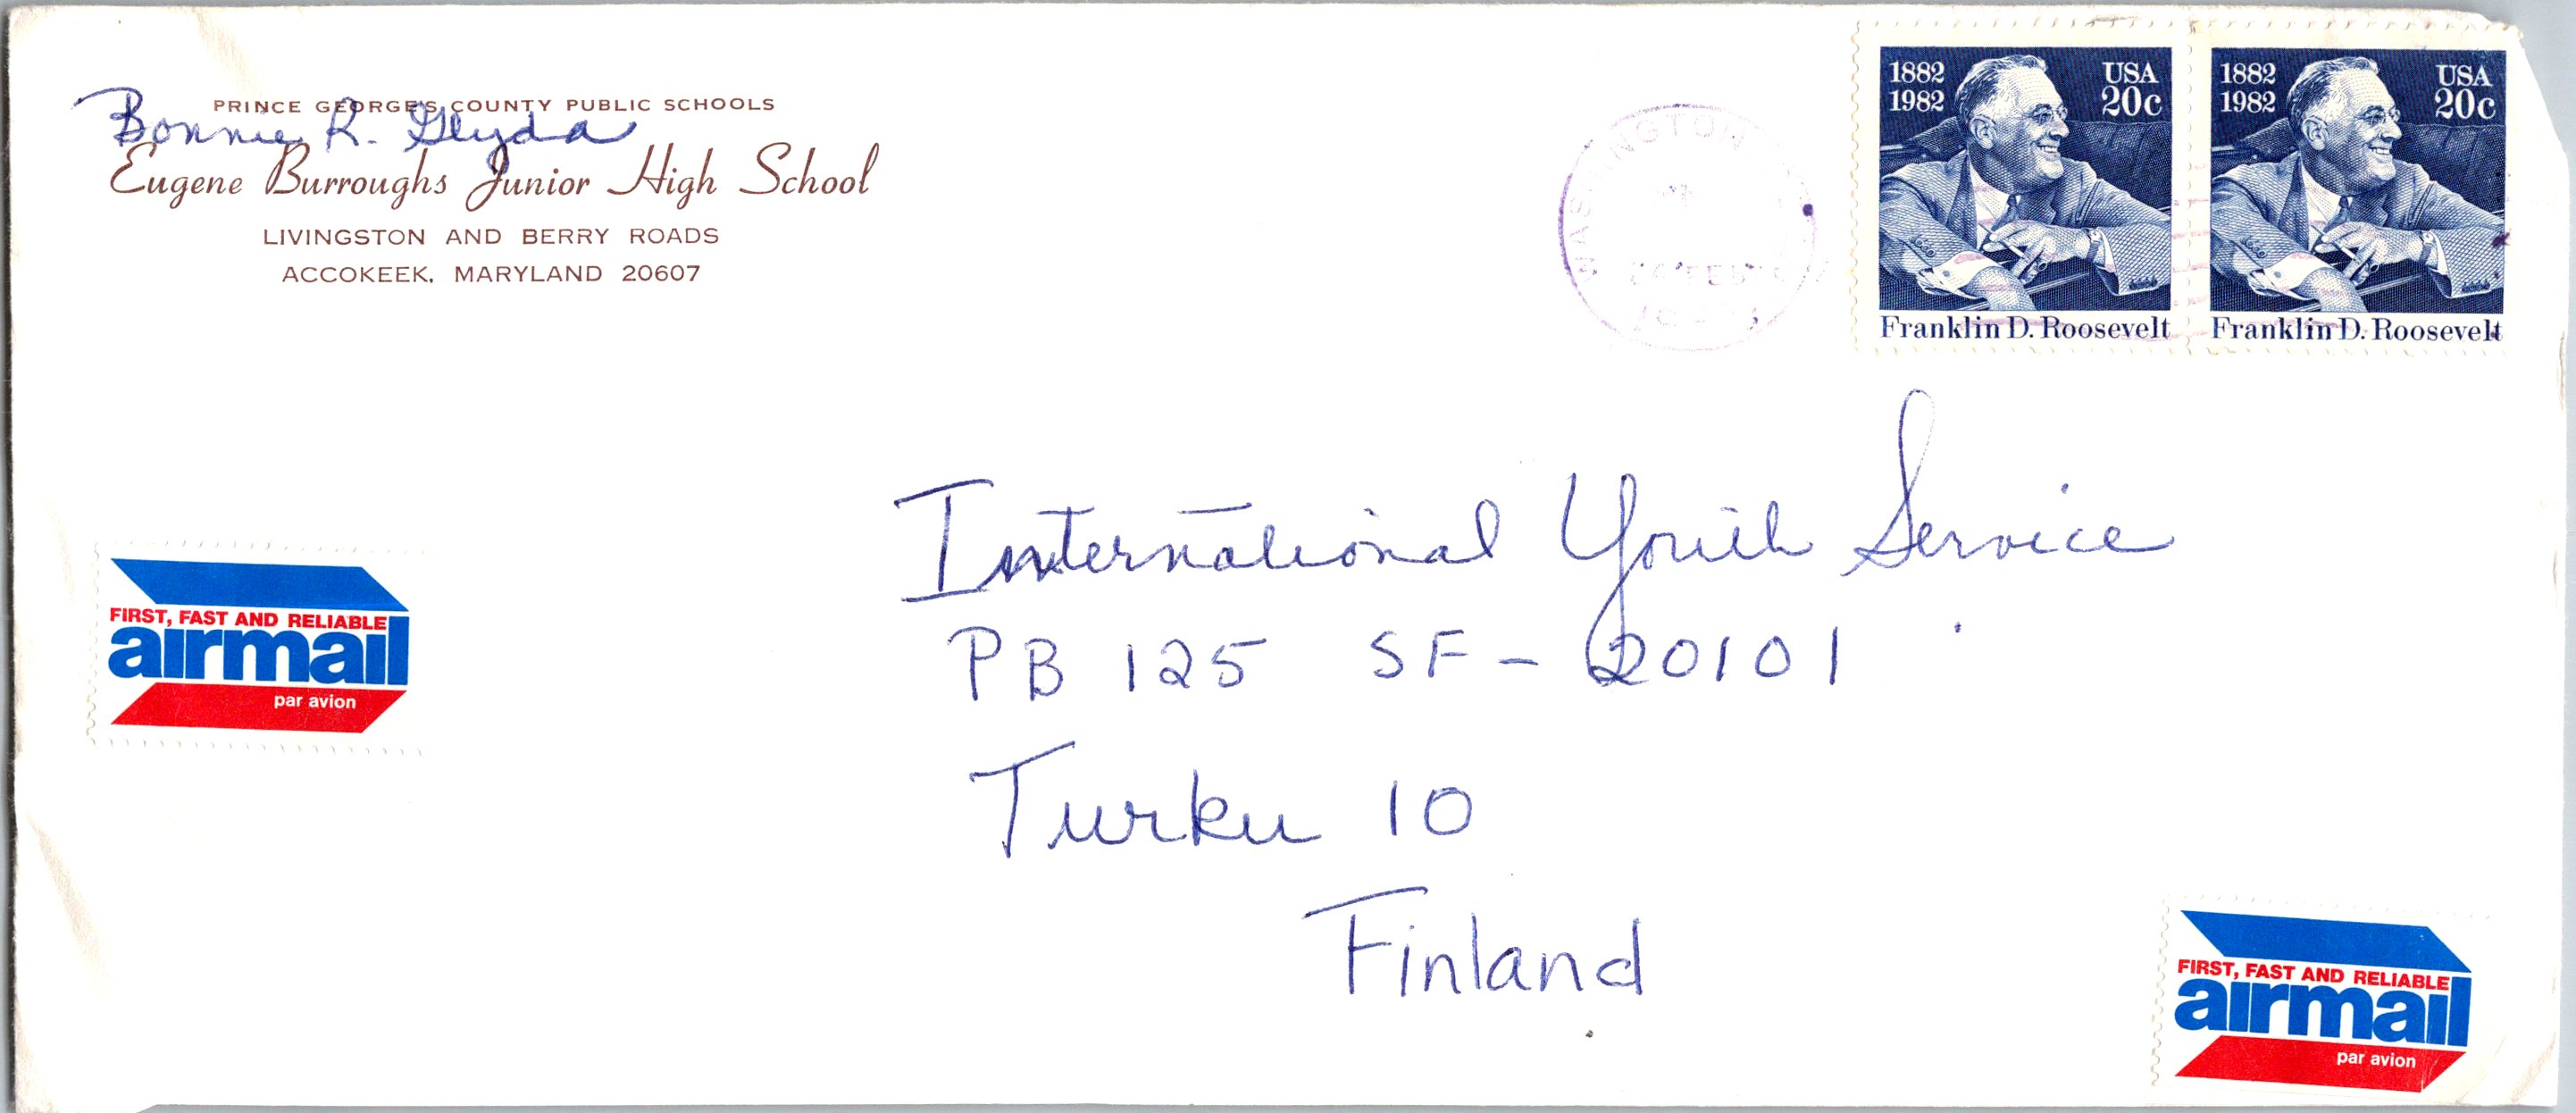 PRINCE GEORGE'S COUNTY PUBLIC SCHOOLS
Bonnie R.
Eugene Burroughs Junior High School
LIVINGSTON AND BERRY ROADS
ACCOKEEK, MARYLAND 20607
WASHINGTON
FEB
1882
1982
USA
20c
Franklin D. Roosevelt
1882
1982
USA
20c
Franklin D. Roosevelt
International Youth Service
PB 125 SF - 20101
Turku 10
Finland
FIRST, FAST AND RELIABLE
airmail
par avion
FIRST, FAST AND RELIABLE
airmail
par avion